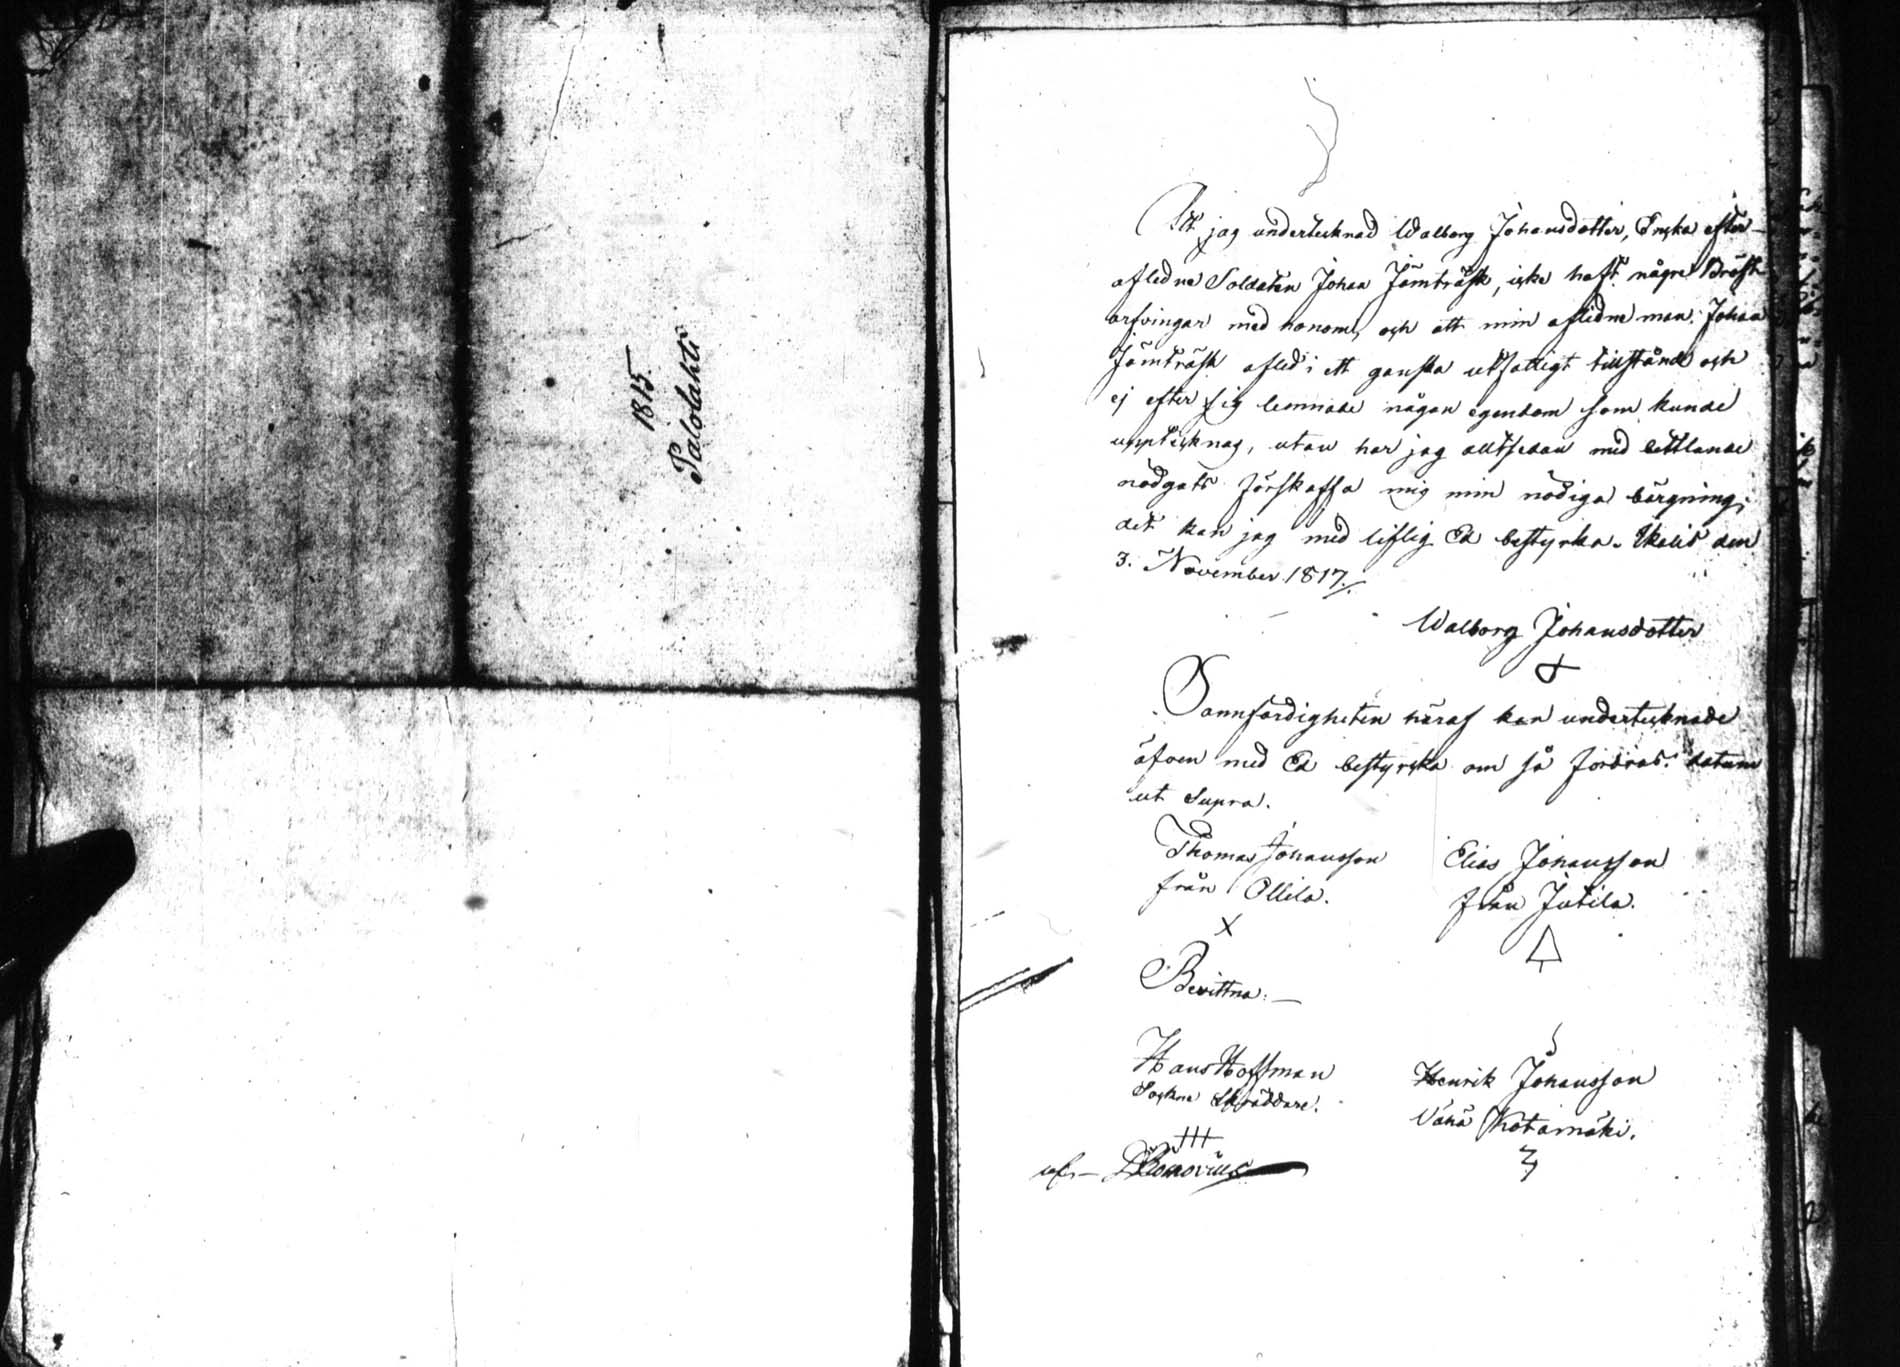 1815.
Palolahti
At jag undertecknad Walborg Johansdotter, Enka efter
afledne Soldaten Johan Jämträsk, icke haft några Bröst
arfvingar med honom, och att min aflidne man Johan
Jämträsk afled i ett ganska utfattigt tillstånd och
ej efter sig lemnade någon egendom som kunde
upptecknas, utan har jag alltsedan med bettlande
nödgats förskaffa mig min nödiga bärgning;
det kan jag med liflig Ed bestyrka. den
3. November 1817.
Walborg Johansdotter
Sannfärdigheten häraf kan undertecknade
äfven med Ed bestyrka om så fordras. datum
ut Supra.
Thomas Johansson Elias Johansson
från Ollila. från Jutila.
Bevittna:
Hans Hoffman Henrik Johansson
Sockne Skräddare. Vähä Kotamäki.